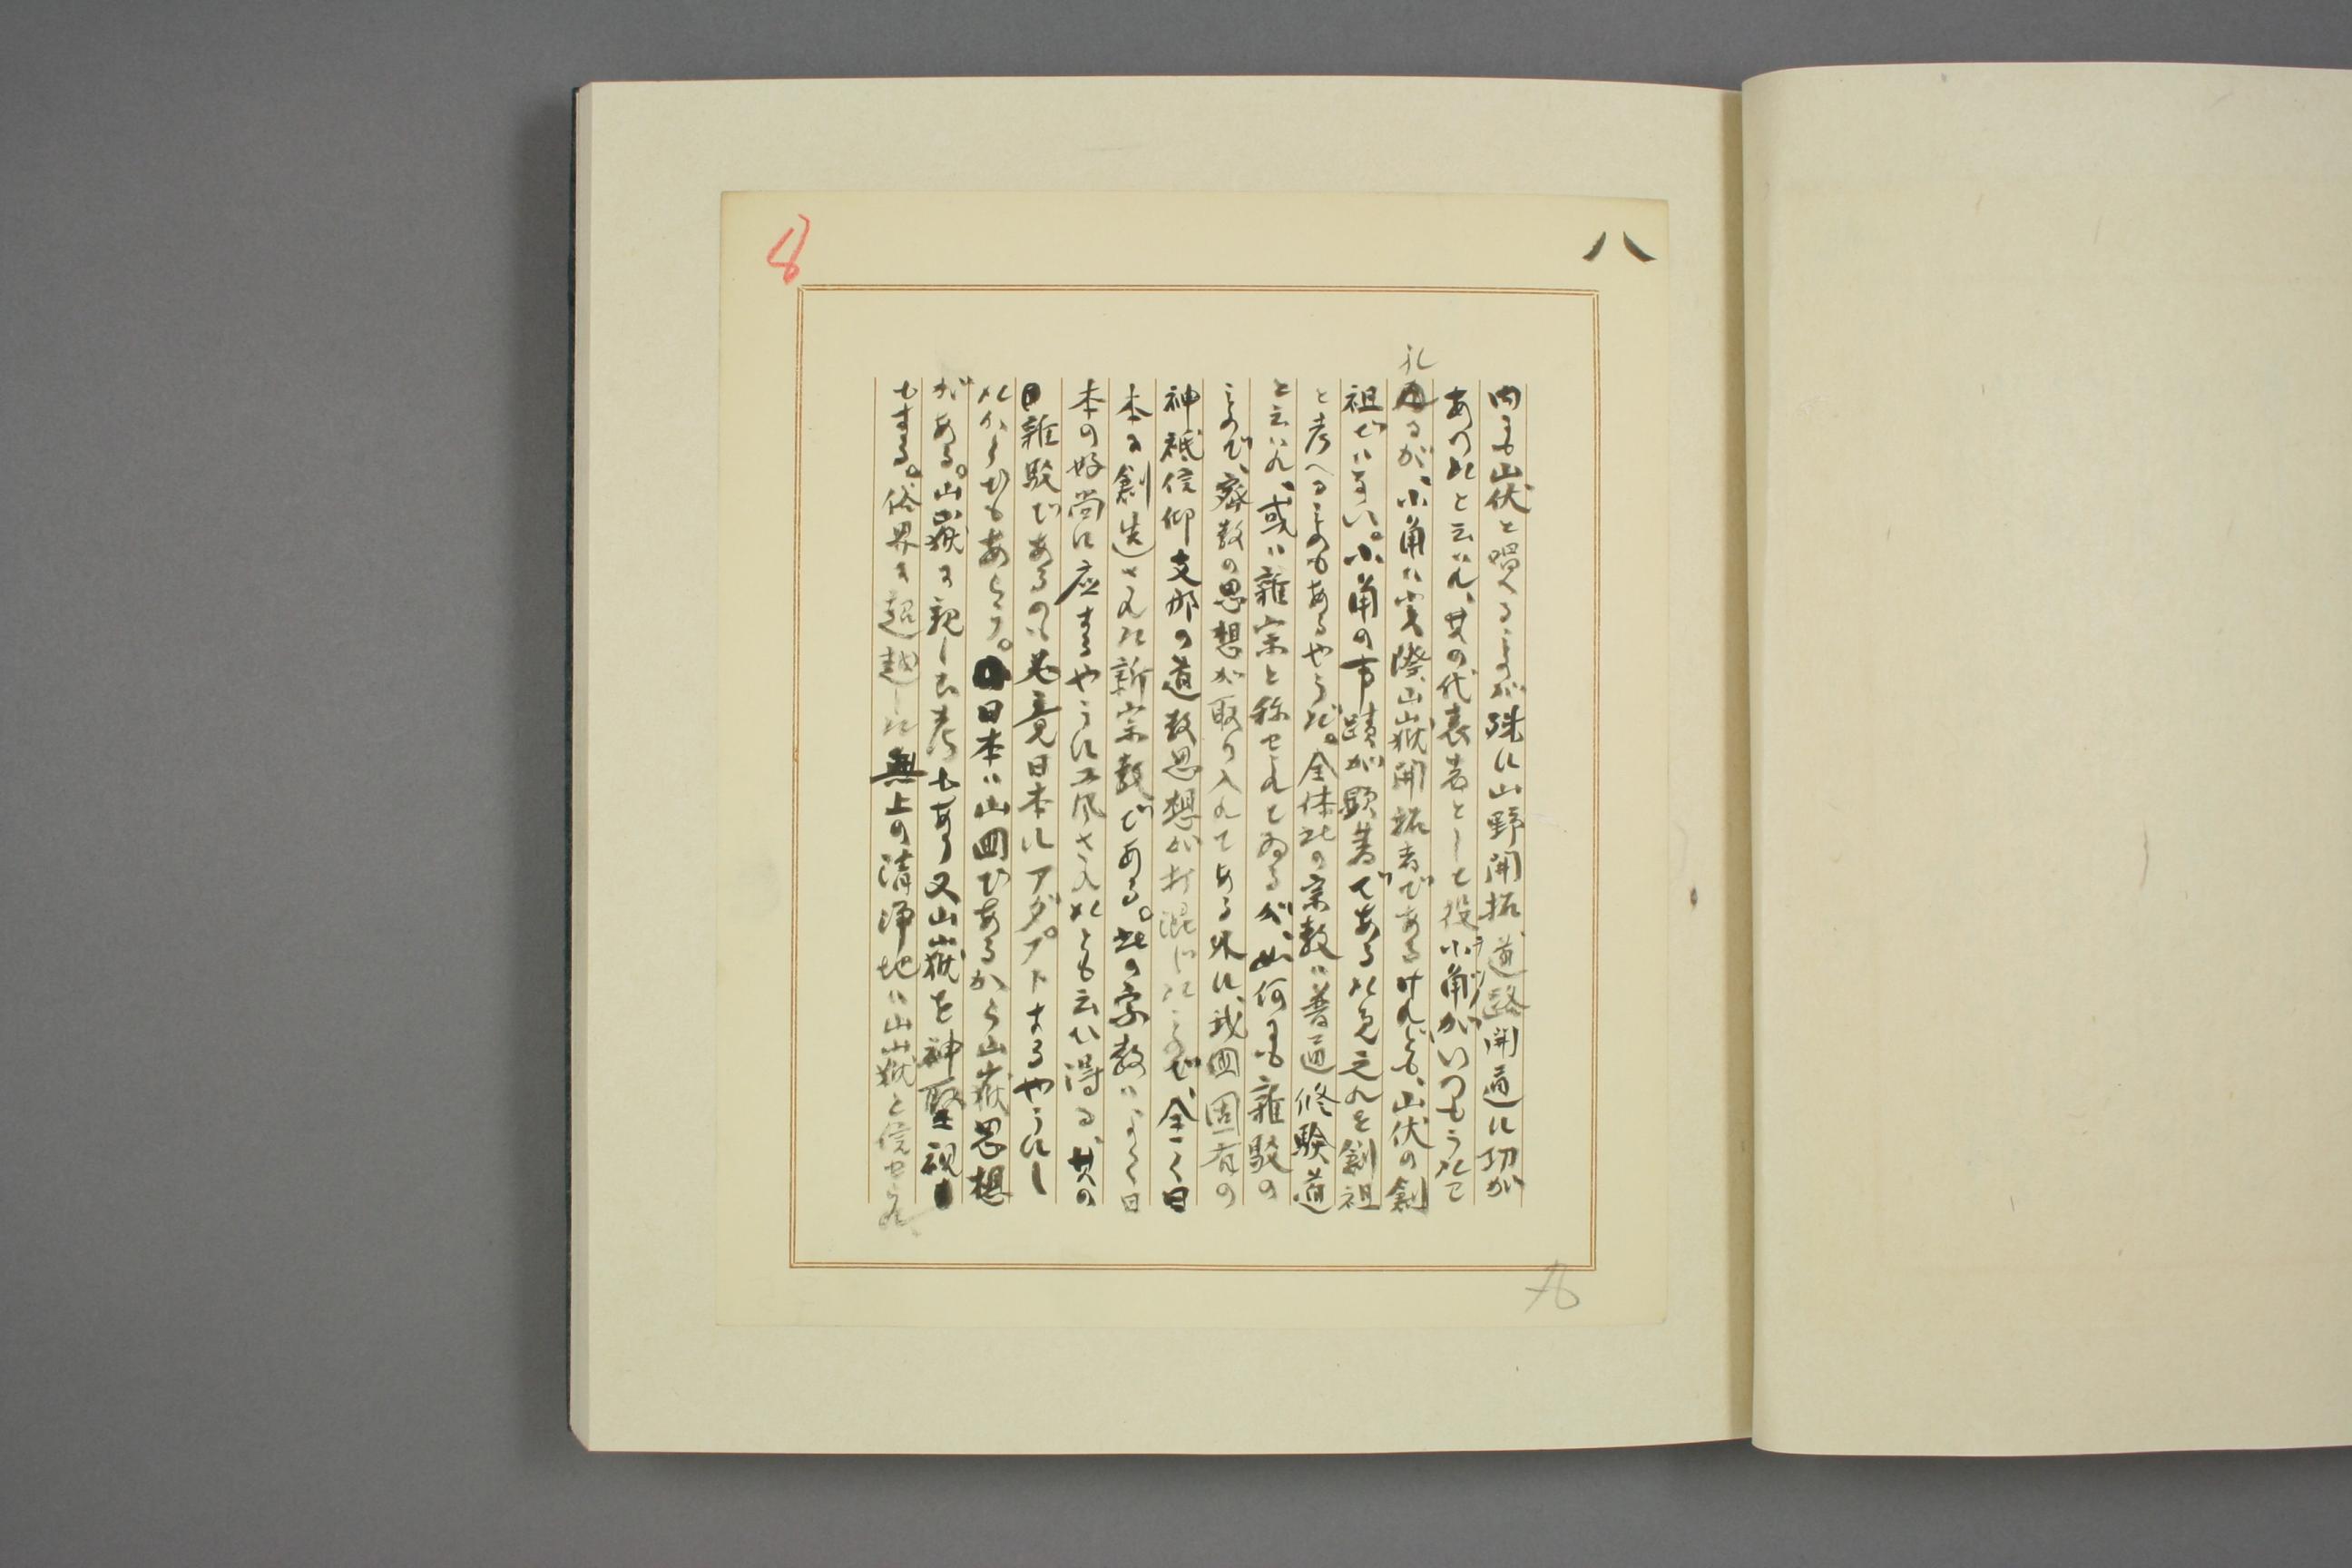 八
8
内にも山伏と唱へるものが殊に山野開拓道路開通に功が
あつたと云はれ、其の代表者として役小角がいつもうたは
れるが、小角は実際山嶽開拓者であるけれども、山伏の創
祖ではない。小角の事蹟が顕著であるため之れを創祖
と考へるものもあるやうだ。全体此の宗教は普通修験道
と云はれ、或は雑宗と称せられてゐるが、如何にも雑駁の
もので、密教の思想が取り入れてある外に、我国固有の
神祇信仰支那の道教思想が打混じたもので、全く日
本に創造された新宗教である。此の宗教はよく日
本の好尚に応ずるやうに工風されたとも云ひ得る。其の
雑駁であるのは畢竟日本にアダプトするやうにし
たからでもあらう。日本は山国であるから山嶽思想
がある。山嶽に親しむ者もあり又山嶽を神聖視
もする。俗界に超越した無上の清浄地は山嶽と信ぜられ